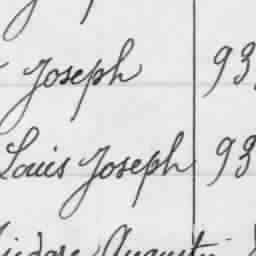 Joseph 93
Louis Joseph 93
Isidore Augustin